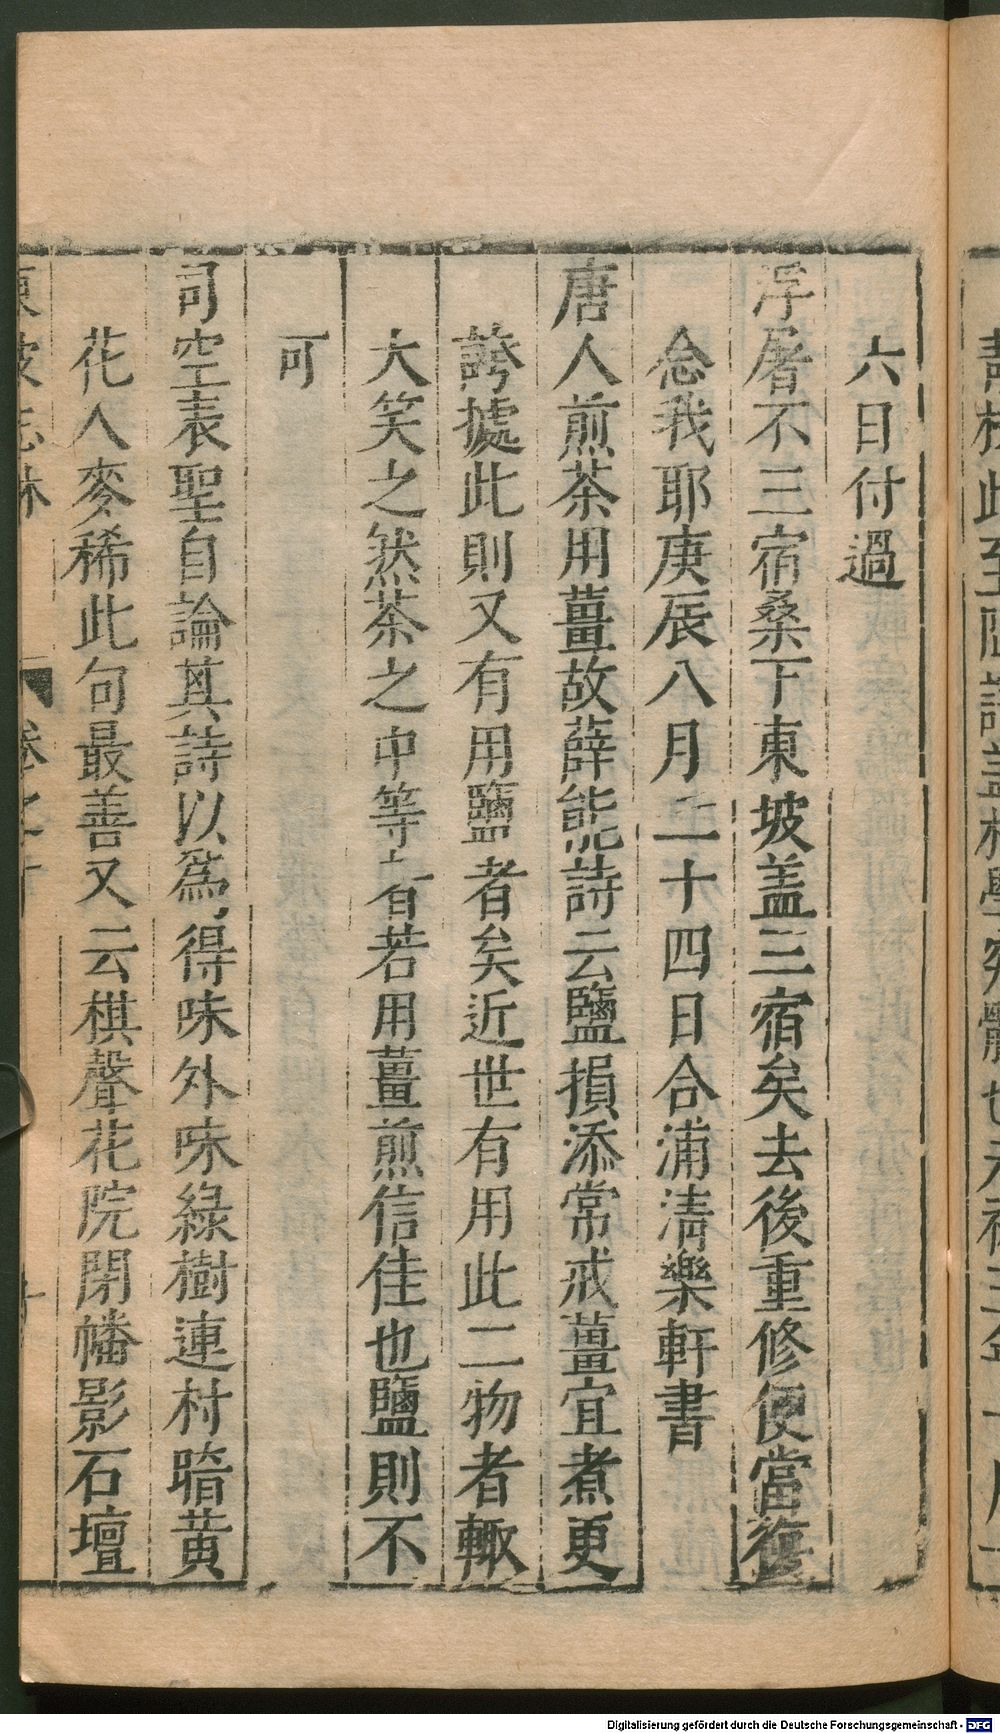 六日付過
浮屠不三宿桑下東坡盖三宿矣去後重修便當復
念我耶庚辰八月二十四日合浦清樂軒書
唐人煎茶用薑故薛能詩云鹽損添常戒薑宜煮更
誇據此則又有用鹽者矣近世有用此二物者輙
大笑之然茶之中等者若用薑煎信佳也鹽則不
可
司空表聖自論其詩以爲得味外味綠樹連村暗黃
花入麥稀此句最善又云棋聲花院閉幡影石壇
Digitalisierung gefördert durch die Deutsche Forschungsgemeinschaft - DFG